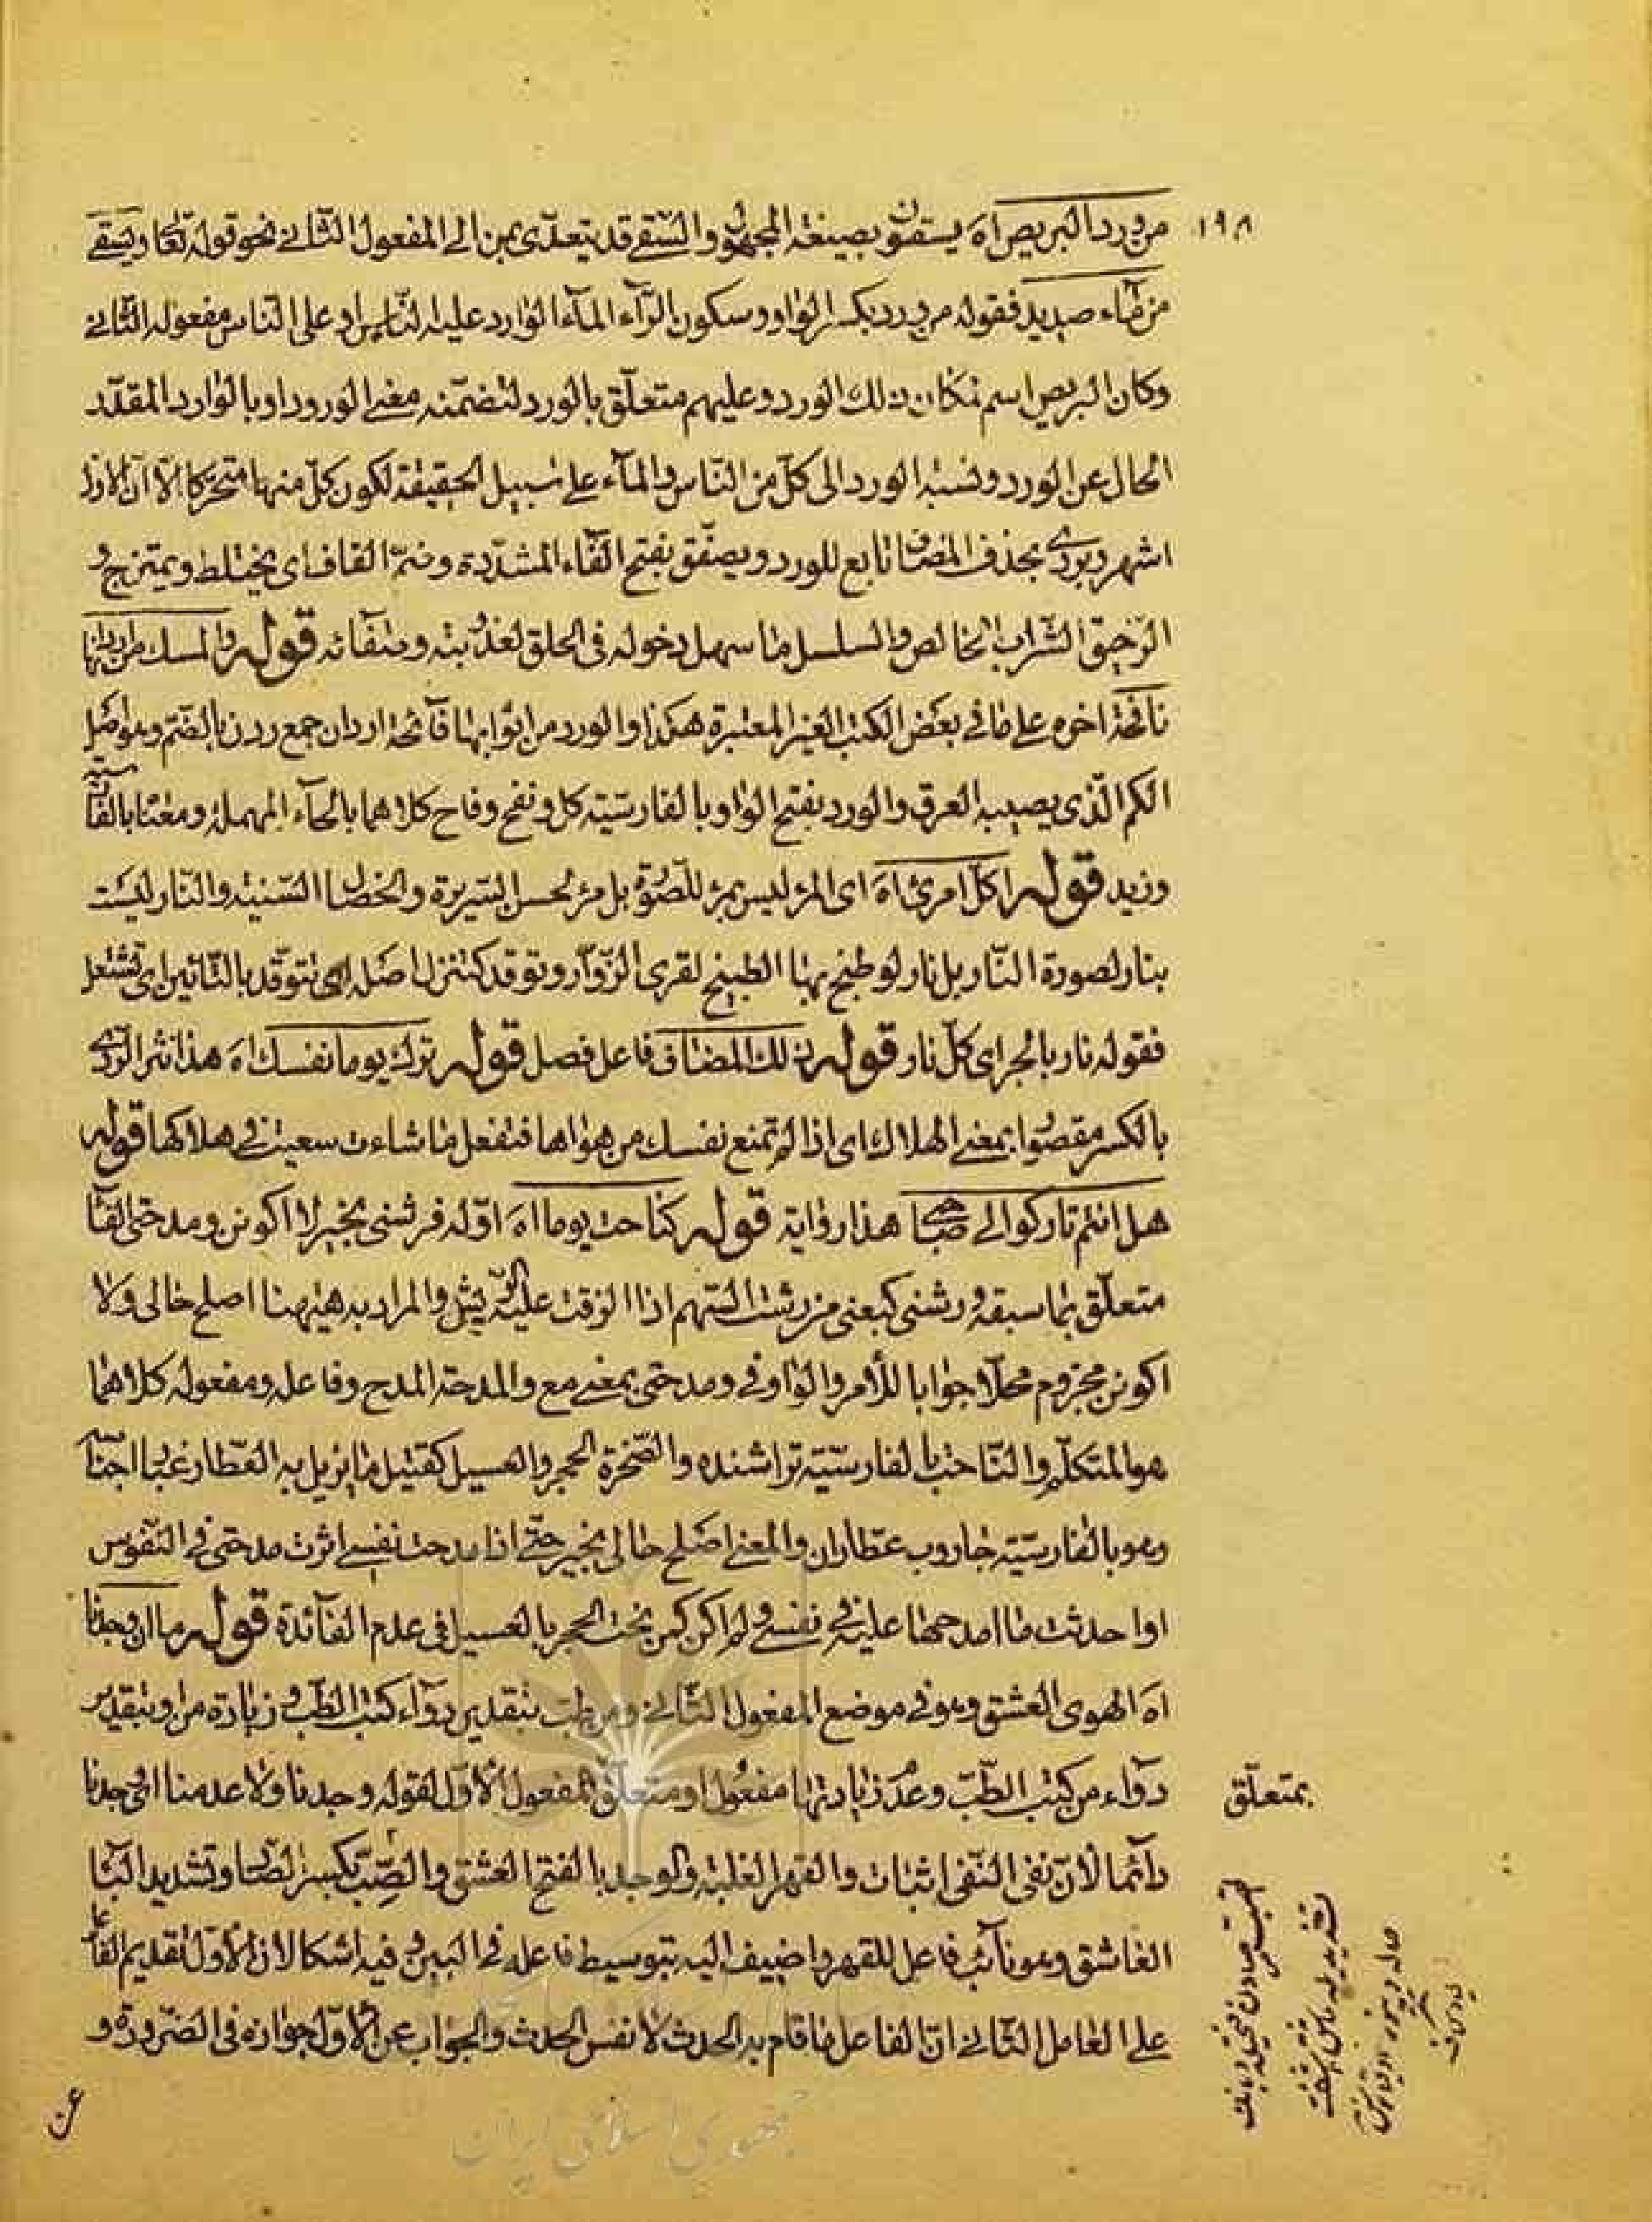 ١٩٨
من ورد البريص اه يسقون بصيغة المجهول والسقى قد يتعدى بمن الى المفعول الثاني نحو قوله تعا ويسقى
من ماء صديد فقوله من ورد بكسر الواو وسكون الراء الماء الوارد عليه الناس او على الناس مفعوله الثاني
وكان البريص اسم مكان ذلك الورد وعليهم متعلق بالورد لتضمنه معنى الورود او بالوارد المقدر
الحال عن الورد ونسبة الورد الى كل من الناس والماء على سبيل الحقيقة لكون كل منهما متحركا الا ان الاول
اشهر وبردى بحذف المضاف تابع للورد ويصفق بفتح الفاء المشددة وضم القاف اى يختلط ويمتزج و
الرحيق الشراب الخالص والسلسل ما سهل دخوله فى الحلق لعذوبته وصفائه قوله والمسك من اردانها
نافحة اخره على ما في بعض الكتب الغير المعتبرة هكذا والورد من ابوابها فائحة اردان جمع ردن بالضم وهو اصل
الكم الذى يصيبه العرق والورد بفتح الواو بالفارسية كل ونفح وفاح كلاهما بالحاء المهملة ومعناه بالفارسية
وزيد قوله اكل امرئ اه اى المرء ليس بمرء للصورة بل مرء لحسن السيرة والخصال السنية والنار ليست
بنار لصورة النار بل نار لو طبخ بها الطبيخ لقرى الزوار وتوقد كتنزل اصله تتوقد بالتائين اى تشتعل
فقوله نار بالجر اى كل نار قوله ذلك المضاف فاعل فصل قوله ترك يوما نفسك اه هذا نثر الردى
بالكسر مقصورا بمعنى الهلاك اى اذا لم تمنع نفسك من هواها فتفعل ما شاءت سعيت في هلاكها قوله
هل انتم تاركوا لى صاحبى هذا رواية قوله كناحت يوما اه اوله فرشنى بخير لا اكونن ومدحتى الفاء
متعلق بما سبقه ورشنى كبعنى من رشت السهم اذا الزقت عليه الريش والمراد به هيهنا اصلح حالى ولا
اكونن مجزوم محلا جوابا للأمر والواو في ومدحتى بمعنى مع والمدحة المدح وفاعله ومفعوله كلاهما
هو المتكلم والناحت بالفارسية تراشنده والصخرة الحجر والعسيل كقتيل ما يزيل به العطار غبار اجناسه
وهو بالفارسية جاروب عطاران والمعنى اصلح حالى بخير حتى اذا مدحت نفسى اثرت مدحتى في النفوس
او احدثت ما امدحها عليه في نفسى ولم اكن كمن نحت الحجر بالعسيل فى عدم الفائدة قوله ما ان وجدنا
اه الهوى العشق وهو في موضع المفعول الثاني ومن طب بتقدير دواء كتب الطب و زيادة من او بتقدير
دواء من كتب الطب وعدم زيادتها مفعول او متعلق بمفعول الاول لقوله وجدنا ولا عدمنا اى وجدنا
دائما لان نفى النفى اثبات والقهر الغلبة والوجد بالفتح العشق والصب بكسر الصاد وتشديد الباء
العاشق وهو نائب فاعل للقهر واضيف اليه بتوسيط فاعله في البين وفيه اشكالان الأول تقديم الفاعل
على العامل الثاني ان الفاعل ما قام به الحدث لا نفس الحدث والجواب عن الاول جوازه فى الضرورة و
عن
بمتعلق
جمهوری اسلامی ایران